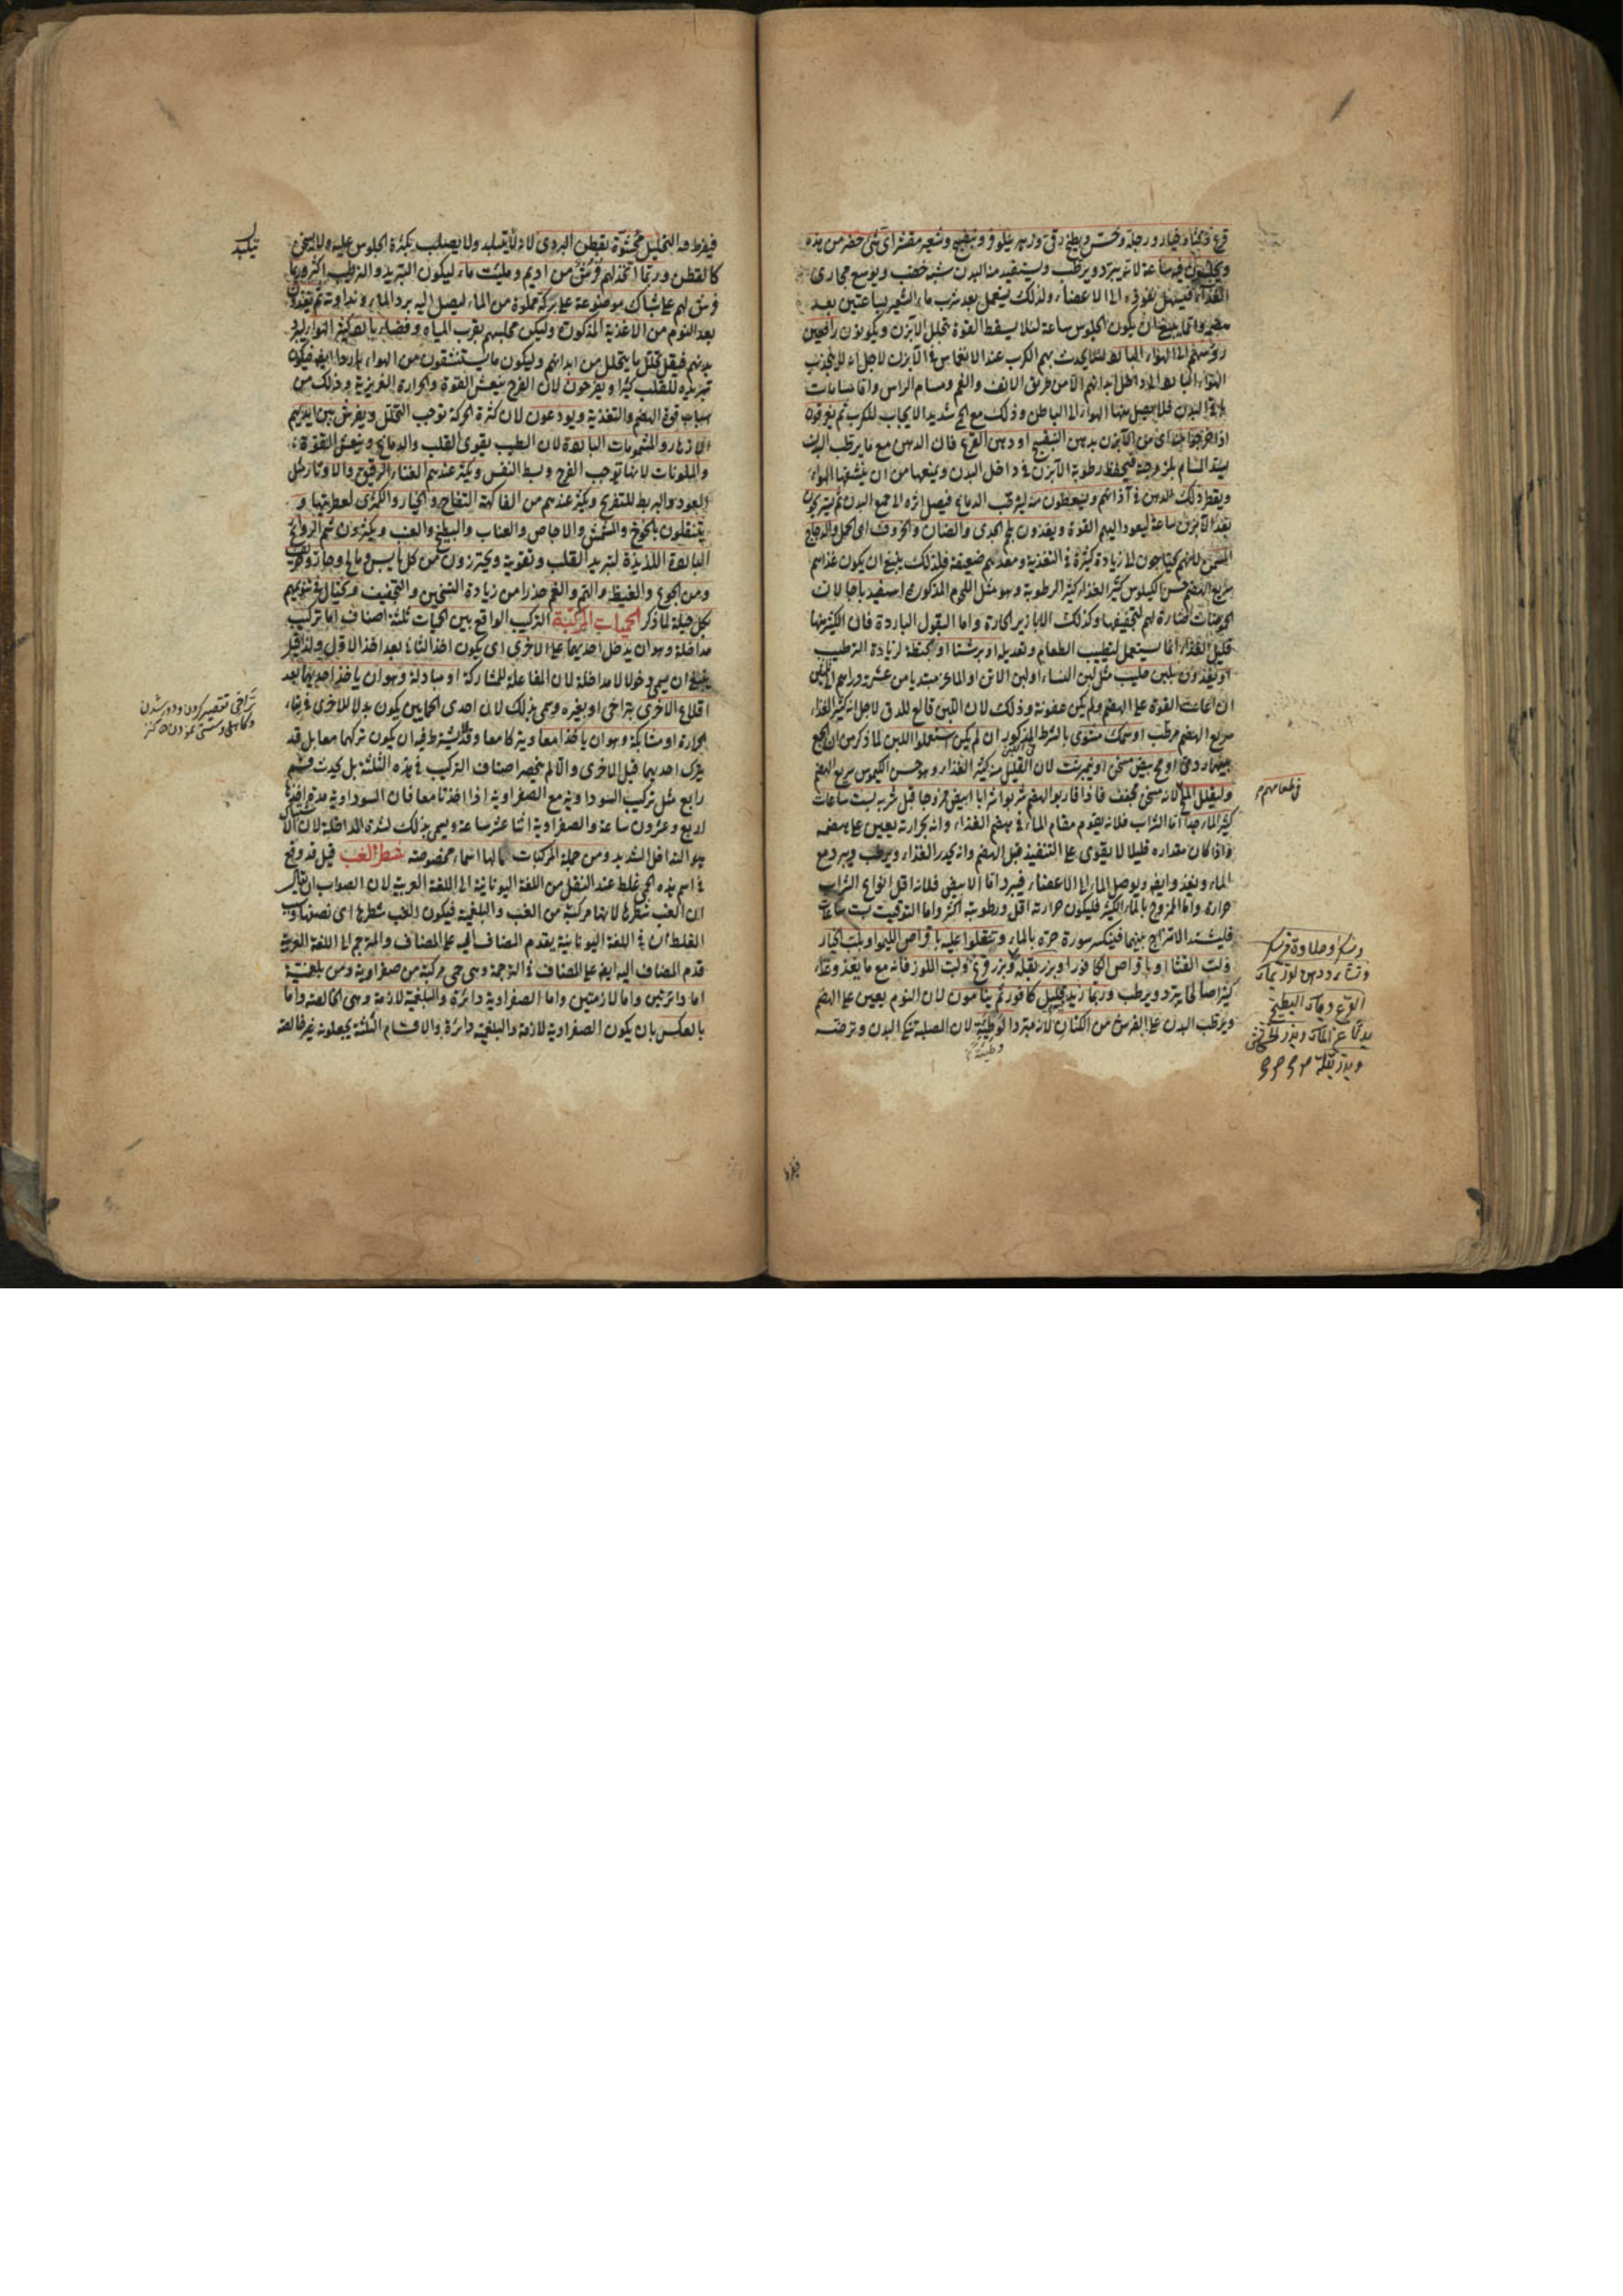 قرع وقثاء وخيار ورجلة وخس وبطيخ رقى وزهر نيلوفر وبنفسج وشعير مقشر اى شئ حضر من هذه
ويجلسون فيه ساعة لانه يبرد ويرطب ويستفيد منه البدن شبه خصب ويوسع مجارى
الغذاء فيسهل نفوذه الى الاعضاء ولذلك يستعمل بعد شرب ماء الشعير بساعتين بعد
ينبغى ان يكون الجلوس ساعة لئلا يسقط القوة بتحليل الآبزن ويكونون رافعين
رؤسهم الى الهواء البارد لئلا يحدث بهم الكرب عند الانغماس فى الآبزن لاجل انه لا ينجذب
الهواء البارد الى داخل ابدانهم الا من طريق الانف والفم ومسام الراس واما مسامات
البدن فلا يصل منها الهواء الى الباطن وذلك مع الحمى شديد الايجاب للكرب ثم يمرخون
اذا خرجوا من الآبزن بدهن البنفسج او دهن القرع فان الدهن مع ما يرطب البدن
يسد المسام بلزوجته فيحفظ رطوبة الآبزن فى داخل البدن ويمنعها من ان ينشفها الهواء
ويقطر ذلك الدهن فى آذانهم ويتسعطون منه ليرطب الدماغ فيصل اثره الى جميع البدن ثم يستريحون
بعد الآبزن ساعة ليعود اليهم القوة ويغذون بلحم الجدى والضان والخروف اى الحمل والدجاج
المسمن لانهم يحتاجون الى زيادة كثيرة فى التغذية ومعدهم ضعيفة فلذلك ينبغى ان يكون غذاءهم
سريع الهضم حسن الكيلوس كثير الغذاء كثير الرطوبة وهو مثل اللحوم المذكورة اسفيدباجا لان
الحموضات ضارة لهم لتجفيفها وكذلك الابازير الحارة واما البقول الباردة فان الكثير منها
قليل الغذاء انما يستعمل لتطييب الطعام وتعديله او برشتا او بحنطة لزيادة الترطيب
او يغذون بلبن حليب مثل لبن النساء او لبن الاتن او الماعز مبتديا من عشرة دراهم الى ثلثين
ان اعانت القوة على الهضم ولم يكن عفونة وذلك لان اللبن قالع للدق لاجل انه كثير الغذاء
سريع الهضم مرطب او سمك مشوى بالشرط المذكور ان لم يكن استعملوا اللبن لما ذكر من ان الجمع
بينهما ردى او مح بيض مسخن او نيمبرشت لان القليل منه كثير الغذاء وهو حسن الكيموس سريع الهضم
وليقلل الملح لانه مسخن مجفف فاذا قاربوا الهضم شربوا شرابا ابيض ممزوجا قبل شربه بست ساعات
كثير الماء جدا اما الشراب فلانه يقوم مقام الماء فى هضم الغذاء وانه بحرارته يعين على هضمه
واذا كان مقداره قليلا لا يقوى على التنفيذ قبل الهضم وانه يحدر الغذاء ويرطب ويبرد مع
الماء وينفذ وايضا ويوصل الماء الى الاعضاء فيبرد اما الابيض فلانه اقل انواع الشراب
حرارة واما الممزوج بالماء الكثير فليكون حرارته اقل ورطوبته اكثر واما التوقيت بست ساعات
فليشتد الامتزاج بينهما فينكسر سورة حره بالماء وتنقلوا عليه باقراص الليمو او بلب الخيار
ولب القثاء او باقراص الكافور او بزر بقلة وبزر قرع ولب اللوز فانه مع ما يغذو غذاء
كثيرا صالحا يبرد ويرطب وربما زيد قليل كافور ثم ينامون لان النوم يعين على الهضم
ويرطب البدن على الفرش من الكتان لانه مبرد الوطيئة لان الصلبة تنكى البدن وترضه
وطيئة
فى طعامهم
وسكر وحلاوة من سكر
ونشا ودهن لوز بماء
القرع وماء البطيخ
وبزر بقلة
فيفرط منه التحليل محشوة بقطن البردى لانه لا يتلبد ولا يصلب بكثرة الجلوس عليه ولا يسخن
كالقطن وربما اتخذ لهم فرش من اديم وملئت ماء ليكون التبريد والترطيب اكثر وربما
فرش لهم على شباك موضوعة على بركة مملوة من الماء ليصل اليه برد الماء ونداوته ثم يغذون
بعد النوم من الاغذية المذكورة وليكن مجلسهم بقرب المياه وفضاء باردة كثير الهواء ليبرد
بدنهم فيقل ما يتحلل من ابدانهم وليكون ما يستنشقون من الهواء باردا ايضا فيكون
تبريده للقلب كثيرا ويفرحون لان الفرح ينعش القوة والحرارة الغريزية وذلك من
اسباب قوة الهضم والتغذية ويودعون لان كثرة الحركة توجب التحلل ويفرش بين ايديهم
الازهار والمشمومات الباردة لان الطيب يقوى القلب والدماغ وينعش القوة
والملونات لانها توجب الفرح وبسط النفس ويكثر عندهم الغناء الرقيق والاوتار مثل
العود والبربط للتفريح ويكثر عندهم من الفاكهة التفاح والخيار والكمثرى لعطريتها و
يتنقلون بالخوخ والمشمش والاجاص والعناب والبطيخ والعنب ويكثرون شم الروائح
الباردة اللذيذة لتبريد القلب وتقويته ويحترزون من كل يابس ومالح وحار وحريف
ومن الجوع والغيظ والهم والغم حذرا من زيادة التسخين والتجفيف ويحتال فى تنويمهم
بكل حيلة لما ذكر الحميات المركبة التركيب الواقع بين الحميات ثلثة اصناف اما تركيب
مداخلة وهو ان يدخل احديهما على الاخرى اى يكون اخذ الثانى بعد اخذ الاول ولذا قيل
ينبغى ان يسمى دخولا لا مداخلة لان المفاعلة للمشاركة او مبادلة وهو ان ياخذ احديهما بعد
اقلاع الاخرى بتراخى او بغيره وسمى بذلك لان احدى الحمايين يكون بدلا للاخرى فى بقاء
الحرارة او مشابكة وهو ان ياخذا معا ويتركا معا وقد لا يشترط فيه ان يكون تركهما معا بل قد
يترك احديهما قبل الاخرى والا لم ينحصر اصناف التركيب فى هذه الثلثة بل يحدث قسم
رابع مثل تركيب السوداوية مع الصفراوية اذا اخذتا معا فان السوداوية مدة اخذها
اربع وعشرون ساعة والصفراوية اثنا عشر ساعة ويسمى بذلك لشدة المداخلة لان الاشتباك
هو التداخل الشديد ومن جملة المركبات ما لها اسماء مخصوصة شطر الغب قيل قد وقع
فى اسم هذه الحمى غلط عند النقل من اللغة اليونانية الى اللغة العربية لان الصواب ان يقال
ان الغب شطرها لانها مركبة من الغب والبلغمية فيكون الغب شطرها اى نصفها وسبب
الغلط ان فى اللغة اليونانية يقدم المضاف اليه على المضاف والمترجم الى اللغة العربية
قدم المضاف اليه ايضا على المضاف فى الترجمة وهى حمى مركبة من صفراوية ومن بلغمية
اما دائرتين واما لازمتين واما الصفراوية دائرة والبلغمية لازمة وهى الخالصة واما
بالعكس بان يكون الصفراوية لازمة والبلغمية دائرة والاقسام الثلثة يجعلونه غير خالصة
تراخى تقصير كردن ودور شدن
وكاهلى وسستى نمودن كنز